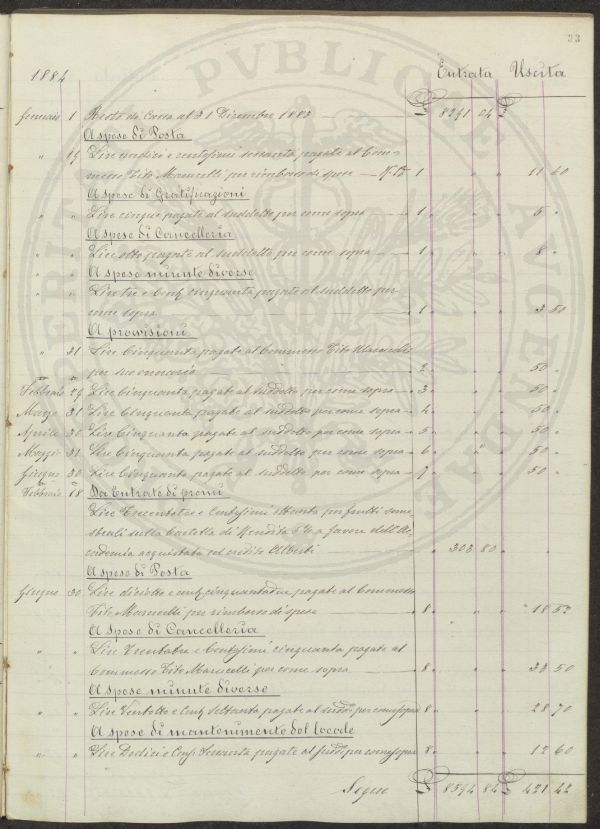 33
1884 Entrata Uscita
Gennaio 1 Resto di Cassa al 31 Dicembre 1883 £ 8291 04 £
A spese di Posta
" 19 Lire undici e centesimi sessanta pagate al Com=
messo Tito Marucelli per rimborso di spese 1 " " 11 60
A spese di Gratificazioni
" " Lire cinque pagate al suddetto per come sopra 1 " " 5 "
A spese di Cancelleria
" " Lire otto pagate al suddetto per come sopra 1 " " 8 "
" " A spese minute diverse
" " Lire tre e Cent. cinquanta pagate al suddetto per
come sopra 1 " " 3 50
A provisioni
" 31 Lire Cinquanta pagate al Commesso Tito Marucelli
per suo onorario 2 " " 50 "
Febbraio 29 Lire Cinquanta pagate al suddetto per come sopra 3 " " 50 "
Marzo 31 Lire Cinquanta pagate al suddetto per come sopra 4 " " 50 "
Aprile 30 Lire Cinquanta pagate al suddetto per come sopra 5 " " 50 "
Maggio 31 Lire Cinquanta pagate al suddetto per come sopra 6 " " 50 "
Giugno 30 Lire Cinquanta pagate al suddetto per come sopra 7 " " 50 "
Febbraio 18 Da Entrate di premi
Lire Trecentotre e Centesimi ottanta per frutti seme
strali sulla Cartella di Rendita 5% a favore dell'Ac
cademia acquistata col credito Alberti " 303 80 " "
A spese di Posta
Giugno 30 Lire diciotto e cent. cinquantadue pagate al Commesso
Tito Marucelli per rimborso di spese 8 " " 18 52
A spese di Cancelleria
" " Lire Trentatre e Centesimi cinquanta pagate al
Commesso Tito Marucelli per come sopra 8 " " 33 50
A spese minute diverse
" " Lire Ventotto e Cent. Settanta pagate al sudd. per come sopra 8 " " 28 70
A spese di mantenimento del locale
" " Lire Dodici e Cent. Sessanta pagate al sudd. per come sopra 8 " " 12 60
Segue £ 8594 84 £ 421 42